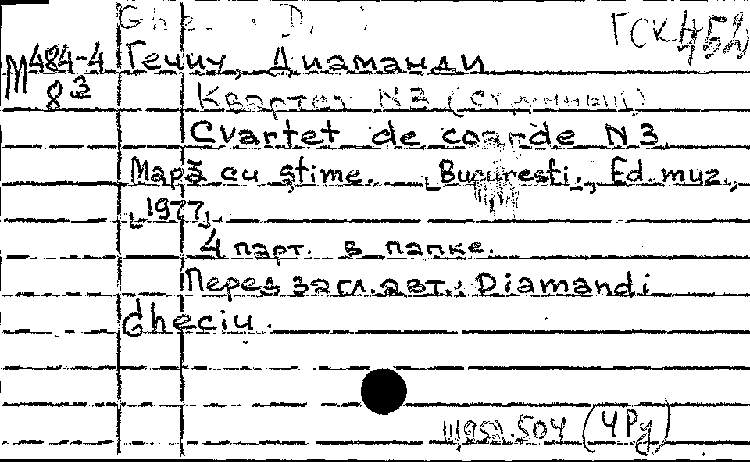 Ghe. D.
ГСК 452
М 484-4
8 3
Гечиу, Диаманди
Квартет N3 (струнный)
Cvartet de coarde N3.
Mapă cu ştime. [Bucureşti], Ed. muz.,
[1977].
4 парт. в папке.
Перед загл. авт.: Diamandi
Gheciu.
504 (4Ру)